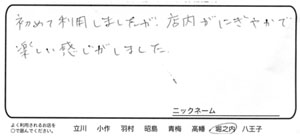 初めて利用しましたが、店内がにぎやかで
楽しい感じがしました。
ニックネーム
よく利用されるお店を
○で囲んでください。
立川 小作 羽村 昭島 青梅 高幡 堀之内 八王子